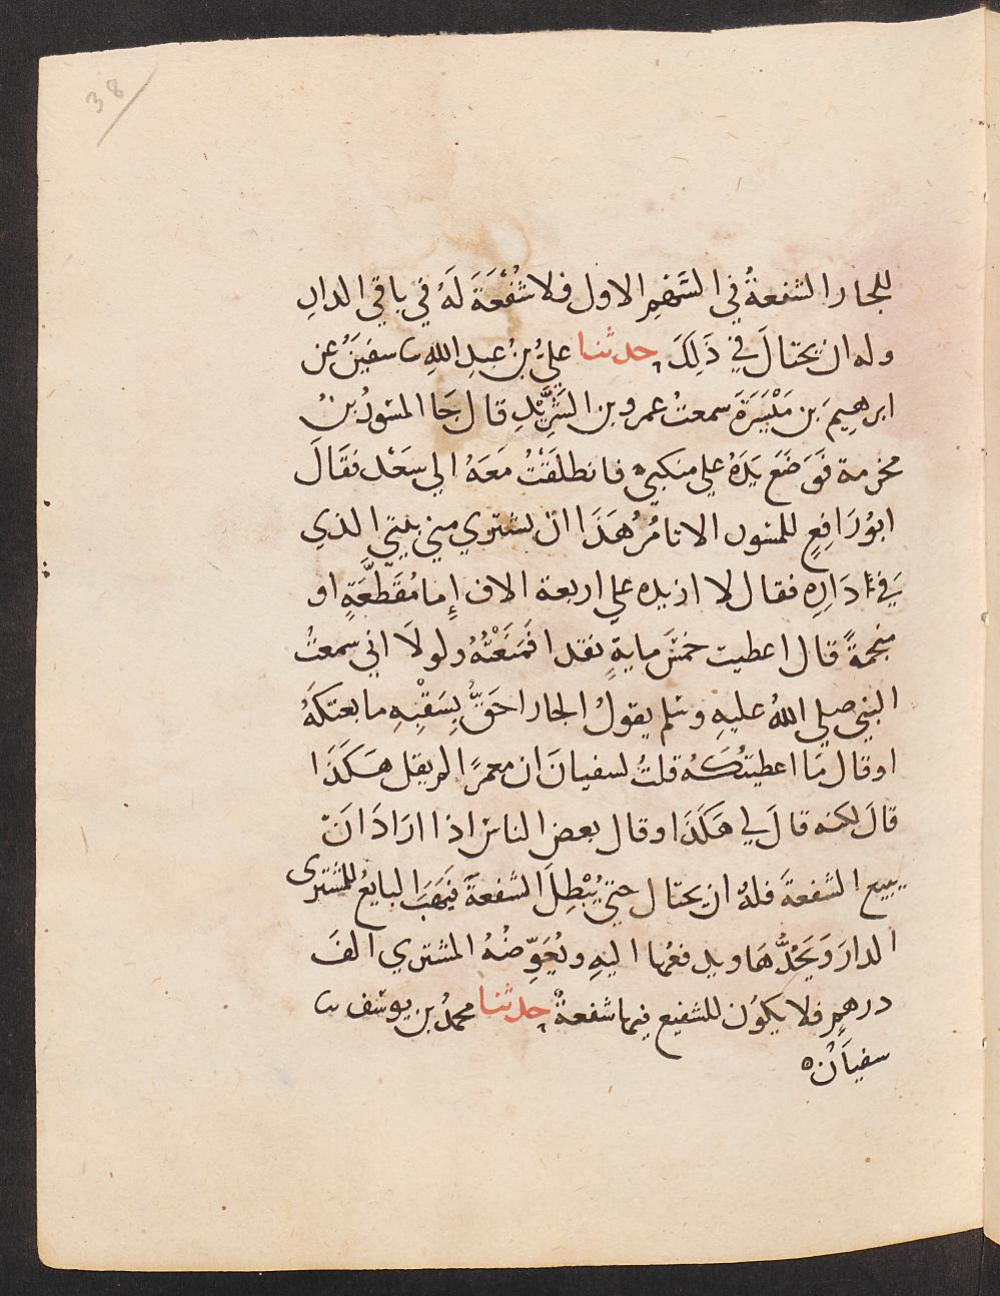 38
للجار الشفعةُ في السَّهْمِ الاول فلا شُفْعَةَ لَهُ في باقي الدارِ
وله ان يحتالَ في ذَلِكَ حدثنا عليُّ بنُ عبدِ اللهِ نا سفينُ عن
ابرهِيمَ بن مَيْسَرَةَ سمعتُ عمرو بن الشَّرِيْدِ قال جَا المسْوَرُ بنُ
مخرمة فَوَضَعَ يَدَهُ علي منكبي فانطلقْتُ مَعَهُ الي سَعْد فقَالَ
ابوُ رَافِعٍ للمسور الا تامُرُ هَذَا ان يشتري مني بيتي الذي
في دَارِهِ فقال لا ازيده علي اربعة الاف إِما مُقَطَّعَةٍ او
منجمةً قال اعطيت خمسَ مايةٍ نقدا فَمَنَعْتُهُ ولولَا اني سمعتُ
النبي صلي اللهُ عليهِ وسَلم يقولُ الجار احَقُّ بِسَقْبِهِ ما بعتكَهُ
او قال مَا اعطيتُكَهُ قلتُ لسفيانَ ان معمرًا لم يقل هَكَذَا
قالَ لكنه قالَ لي هَكَذَا وقال بعض الناسِ اذا ارَادَ انَ
يبيع الشفعةَ فلهُ ان يحتال حتي يُبْطِلَ الشفعةَ فيَهَبَ البايعُ للمشترى
الدارَ وَيَحُدُّهَا ويدفعُها اليهِ ويُعَوِّضُهُ المشتري الفَ
درهمٍ فلا يكوُن للشفيع فيها شفعةٌ حدثنا محمدُ بن يوسف نا
سفيانُ